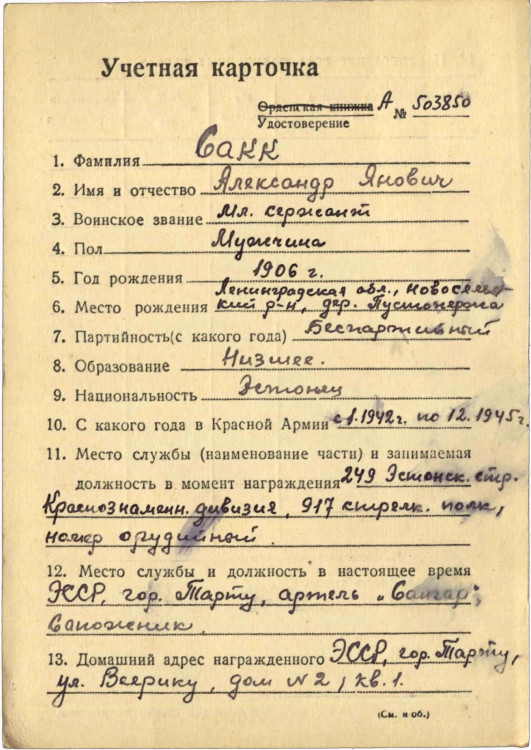 Учетная карточка
Орденская книжка А № 503850
Удостоверение
1. Фамилия Сакк
2. Имя и отчество Александр Янович
3. Воинское звание Мл. сержант
4. Пол Мужчина
5. Год рождения 1906 г.
Ленинградская обл., Новосельс-
6. Место рождения кий р-н, дер.
7. Партийность(с какого года) Беспартийный
8. Образование Низшее.
9. Национальность Эстонец
10. С какого года в Красной Армии с 1.1942г. по 12.1945г.
11. Место службы (наименование части) и занимаемая
должность в момент награждения 249 Эстонск. стр.
Краснознаменн. дивизия, 917 стрелк. полк,
номер орудийный.
12. Место службы и должность в настоящее время
ЭССР, гор. Тарту, артель
Сапожник.
13. Домашний адрес награжденного ЭССР, гор. Тарту,
ул. Веерику, дом № 2, кв. 1.
(См. н об.)